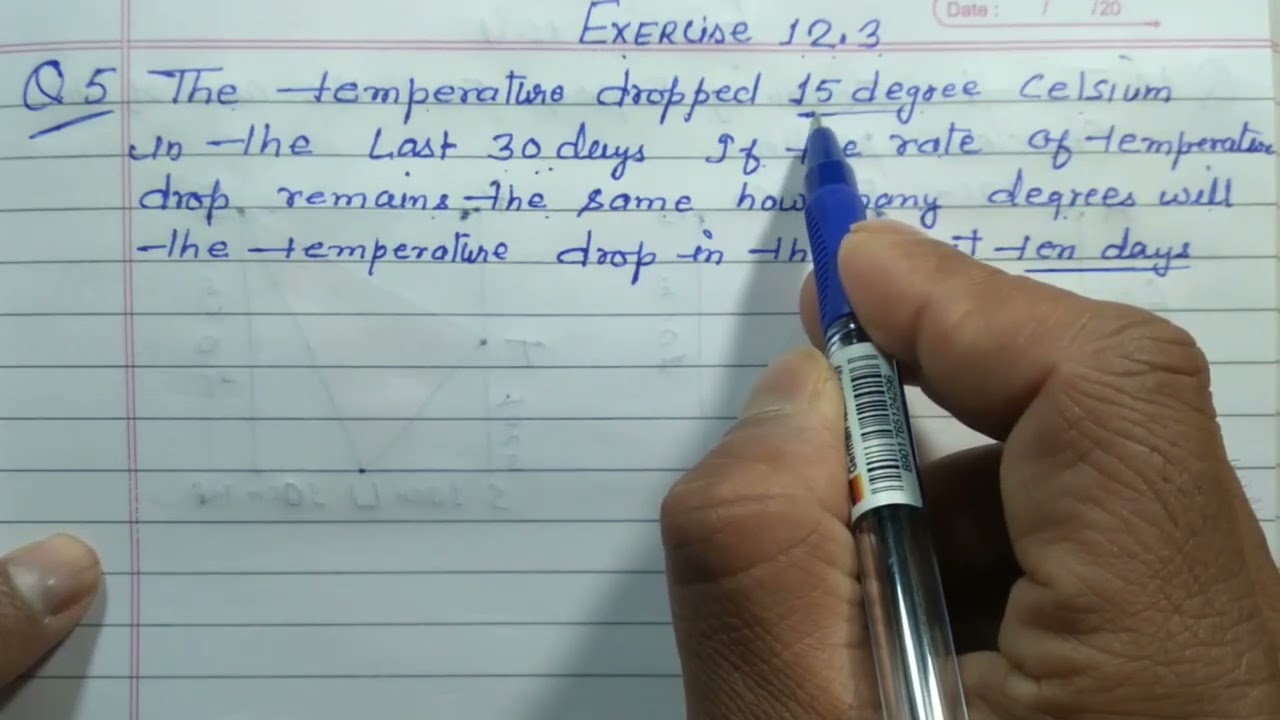 Date : / /20
Exercise 12.3
Q5 The temperature dropped 15 degree Celsium
in the Last 30 days If the rate of temperature
drop remains the same how many degrees will
the temperature drop in ten days
German
8901765124296